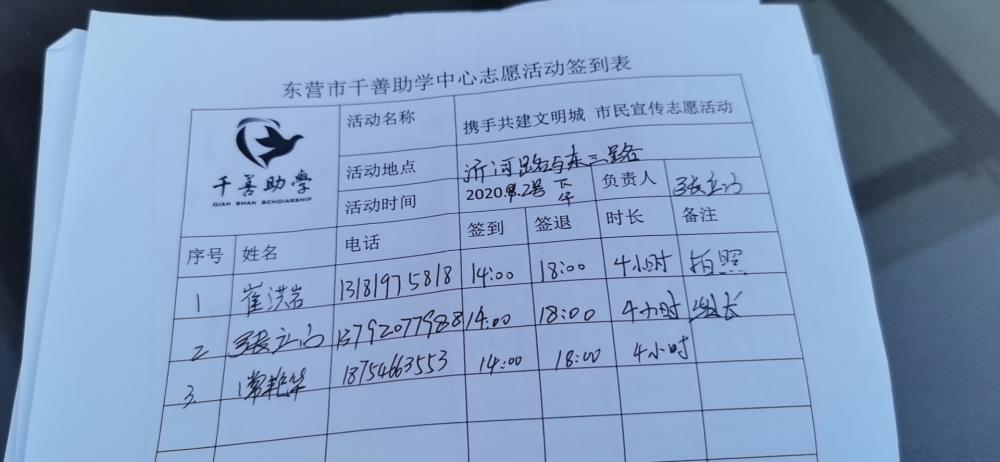 东营市千善助学中心志愿活动签到表
千善助学
QIAN SHAN SCHOIARSHIP
活动名称 携手共建文明城 市民宣传志愿活动
活动地点 沂河路与东三路
活动时间 2020.9.2号 下午 负责人 张立门
序号 姓名 电话 签到 签退 时长 备注
1 崔洪岩 13181975818 14:00 18:00 4小时 拍照
2 张立门 13792077988 14:00 18:00 4小时 组长
3. 常艳华 18754663553 14:00 18:00 4小时